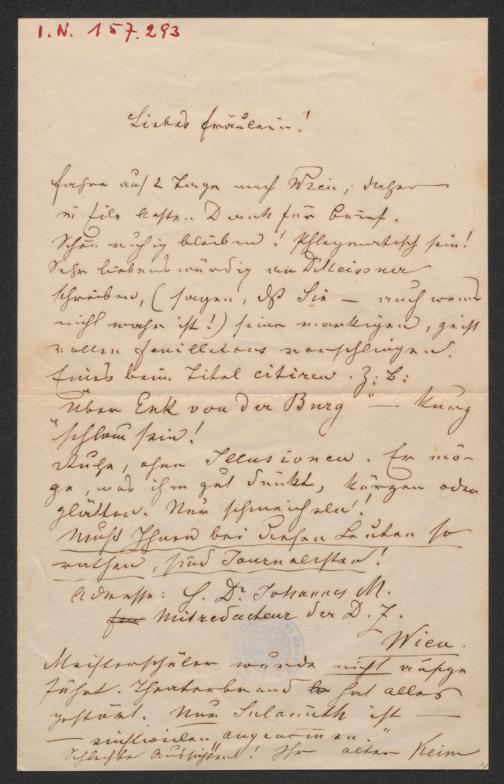 I.N. 157.293
Liebes Fräulein!
Fahre auf 2 Tage nach Wien; daher
in Eile besten Dank für Brief.
Schön ruhig bleiben! Phlegmatisch sein!
Sehr liebenswürdig an Dr Meissner
schreiben, (sagen, daß Sie – auch wenns
nicht wahr ist!) seine markigen, geist
vollen Feuilletons verschlingen.
Eines beim Titel citiren. Z. B:
"Über Enk von der Burg" – Klug
schlau sein!
Ruhe, ohne Illusionen. Er mö-
ge, was ihm gut dünkt, kürzen oder
glätten. Nur schmeicheln!
Muß Ihnen bei diesen Leuten so
rathen, sind Journalisten!
Adresse: H. Dr. Johannes M.
Mitredacteur der D. Z.
Wien.
Meisterschüler wurde nicht aufge
führt. Theaterbrand hat alles
gestört. Nur Sulamith ist –
– einstweilen angenommen."
Schlechte Aussichten! Ihr alter Keim